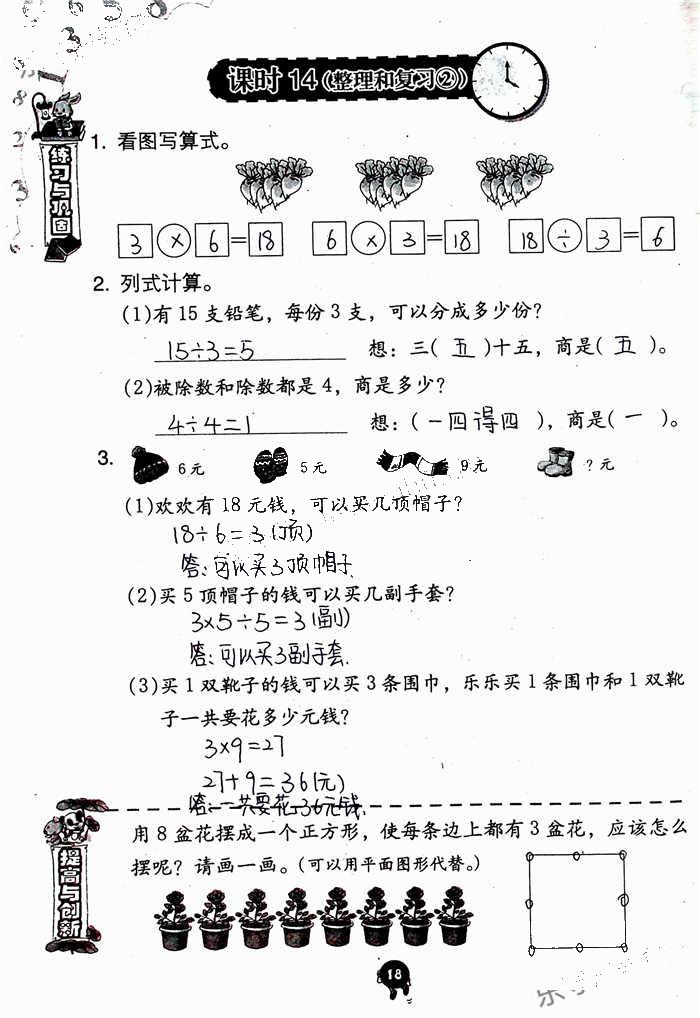 课时 14(整理和复习②)
练习与巩固
1. 看图写算式。
3 × 6 = 18 6 × 3 = 18 18 ÷ 3 = 6
2. 列式计算。
(1)有 15 支铅笔，每份 3 支，可以分成多少份?
15÷3=5 想：三( 五 )十五，商是( 五 )。
(2)被除数和除数都是 4，商是多少?
4÷4=1 想：( 一四得四 )，商是( 一 )。
3. 6元 5元 9元 ?元
(1)欢欢有 18 元钱，可以买几顶帽子?
18÷6=3(顶)
答:可以买3顶帽子
(2)买 5 顶帽子的钱可以买几副手套?
3×5÷5=3(副)
答:可以买3副手套.
(3)买 1 双靴子的钱可以买 3 条围巾，乐乐买 1 条围巾和 1 双靴
子一共要花多少元钱?
3×9=27
27+9=36(元)
答:一共要花36元钱.
提高与创新
用 8 盆花摆成一个正方形，使每条边上都有 3 盆花，应该怎么
摆呢? 请画一画。(可以用平面图形代替。)
18